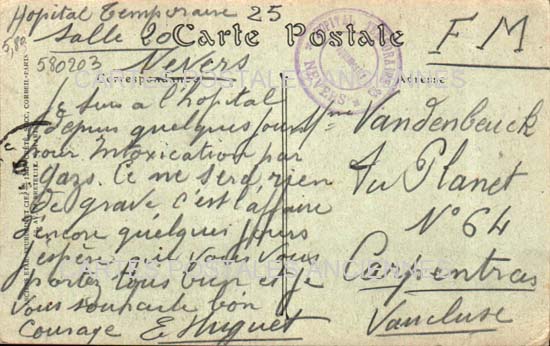 Hopital Temporaire 25
Salle 20
Nevers
5,89
580203
Carte Postale
F M
Correspondance
Adresse
HOPITAL TEMPORAIRE
NEVERS
Je suis a l'hopital
depuis quelques jours
pour Intoxication par
Gazs. Ce ne sera rien
De grave c'est l'affaire
d'encore quelques jours
J'espère que vous vous
portez tous bien et je
Vous souhaite bon
Courage E Huguet
Mme Vandenbeuck
Au Planet
N° 64
Carpentras
Vaucluse
CARTES POSTALES ANCIENNES
CARTES POSTALES ANCIENNES